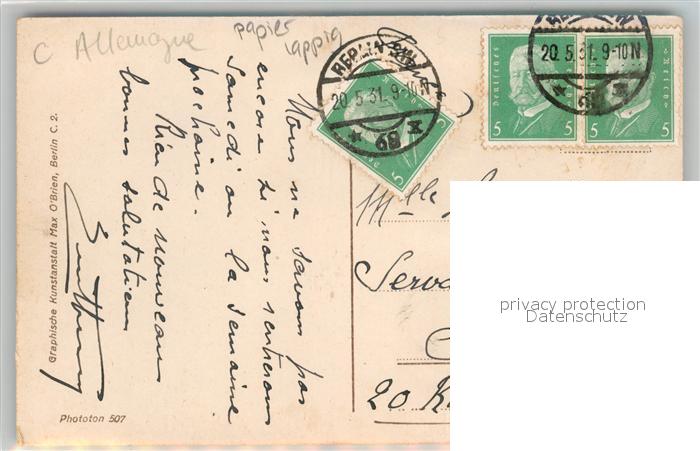 C Allemagne
papier
lappig
BERLIN
20.5.31.9-10N
* 68 *
Deutsches Reich
5
5
5
20.5.31.9-10N
Nous ne savons pas
encore si nous rentrerons
samedi ou la semaine
prochaine.
Rien de nouveau
bonnes salutations
Mlle
Serva
20 R
privacy protection
Datenschutz
Graphische Kunstanstalt Max O'Brien, Berlin C. 2.
Phototon 507